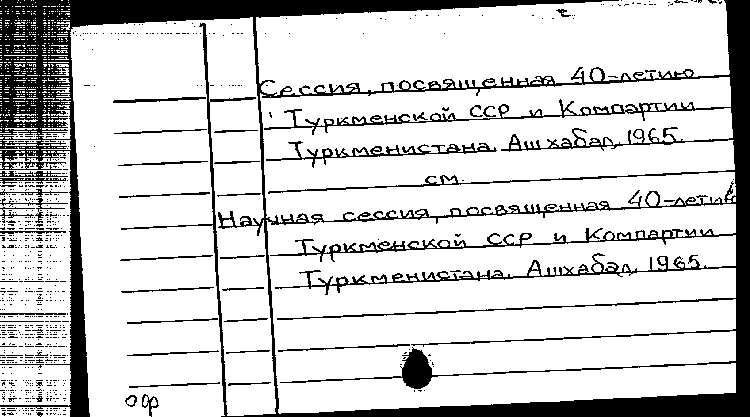 Сессия, посвященная 40-летию
Туркменской ССР и Компартии
Туркменистана. Ашхабад, 1965.
см.
Научная сессия, посвященная 40-летию
Туркменской ССР и Компартии
Туркменистана. Ашхабад, 1965.